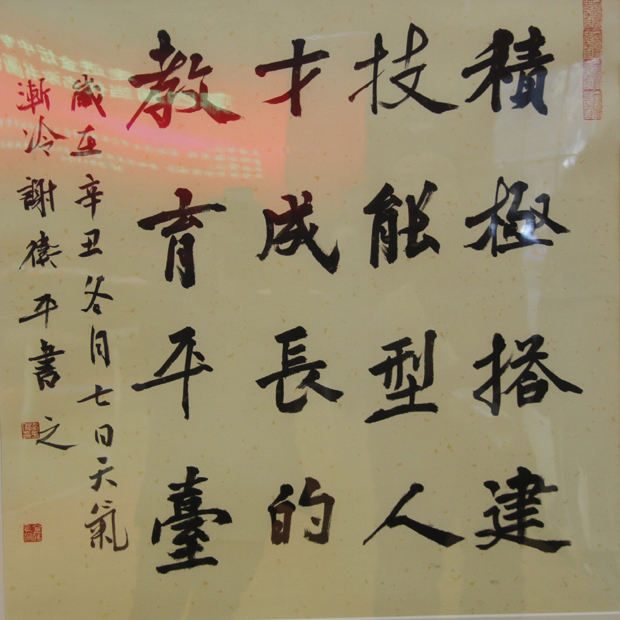 積極搭建
技能型人
才成長的
教育平臺
歲在辛丑冬月七日天氣
漸冷謝衛平書之